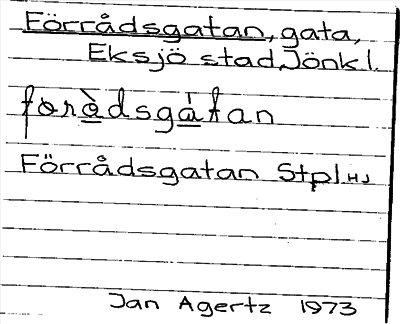 Förrådsgatan, gata,
Eksjö stad, Jönk l.
forådsgatan
Förrådsgatan Stpl HJ
Jan Agertz 1973